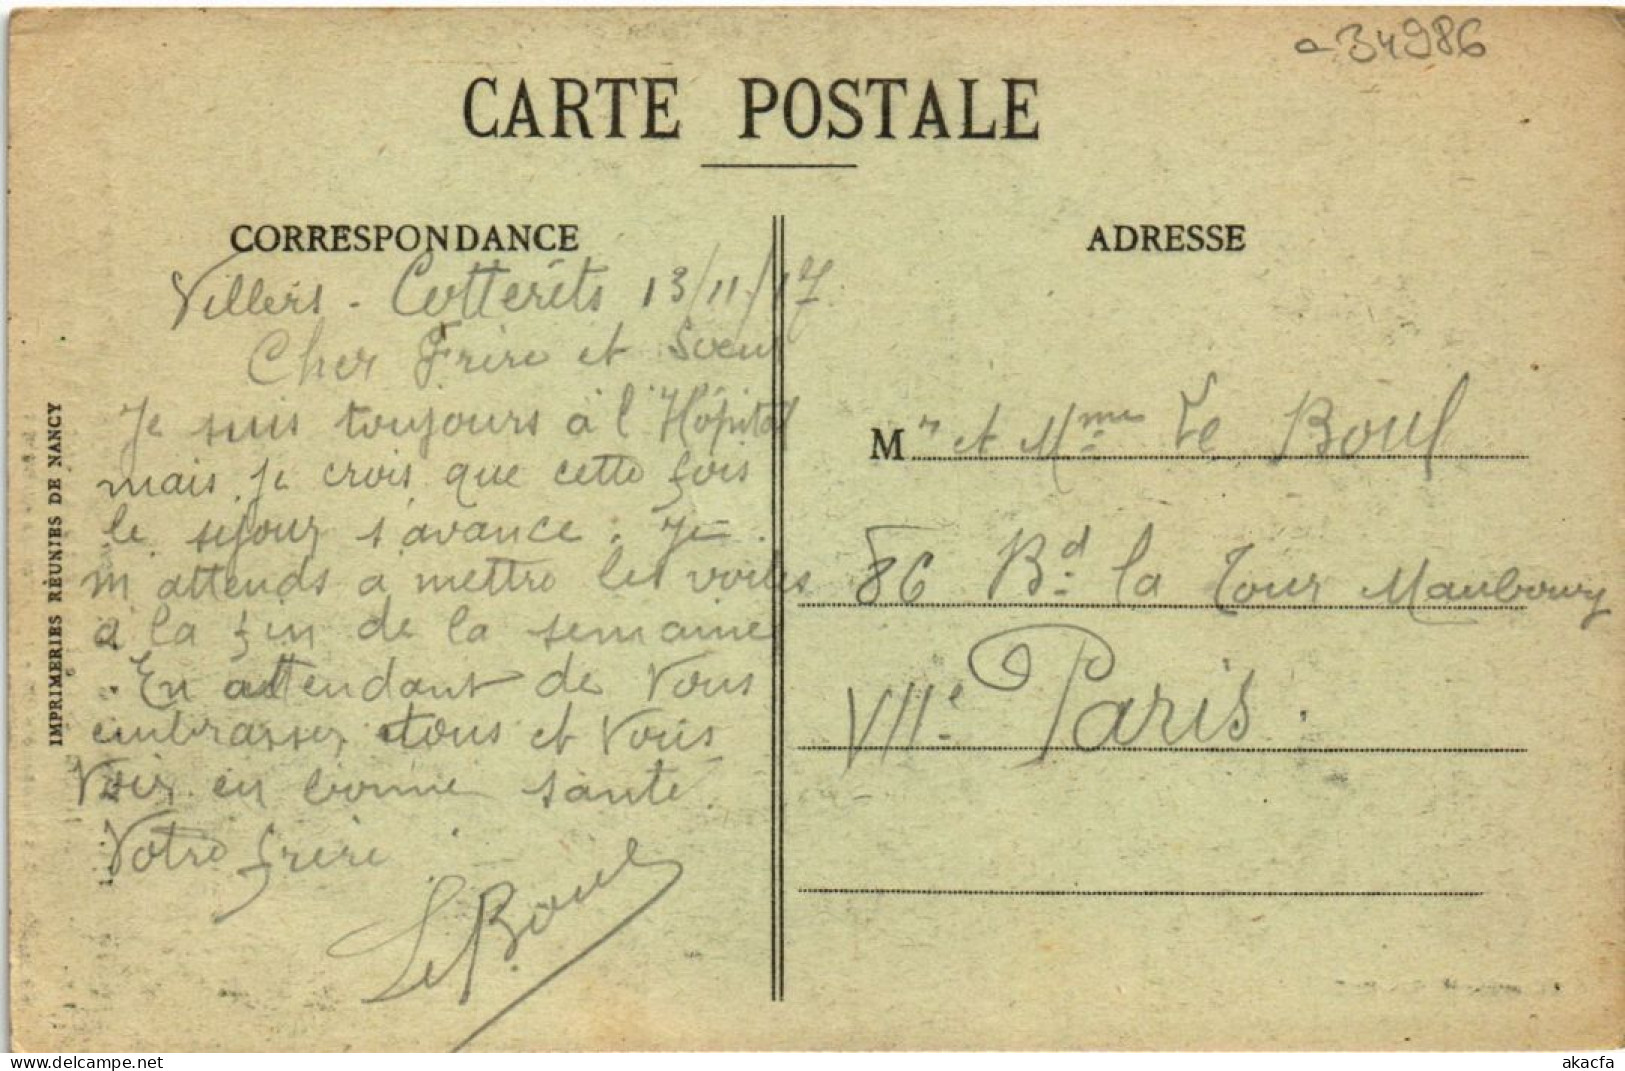 a 34986
CARTE POSTALE
CORRESPONDANCE
Villers-Cotterêts 13/11/17.
Cher Frère et Soeur
Je suis toujours à l'Hôpital
mais je crois que cette fois
le séjour s'avance. Je
m'attends a mettre les voiles
à la fin de la semaine
En attendant de Vous
embrasser tous et Vous
Voir en bonne santé.
Votre frère
Le Bouf
ADRESSE
Mr et Mme Le Bouf
86 Bd. la Tour Maubourg
VIIe. Paris.
IMPRIMERIES RÉUNIES DE NANCY
akacfa